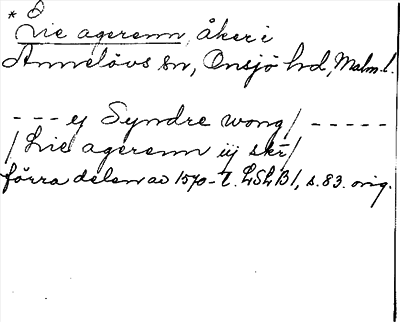 * Lie agerenn, åker i
Annelövs sn, Onsjö hd, Malm. l.
--- ej Syndre wong / -----
/ Lie agerenn iij skr /
förra delen av 1570-t. LSLB 1, s. 83. orig.